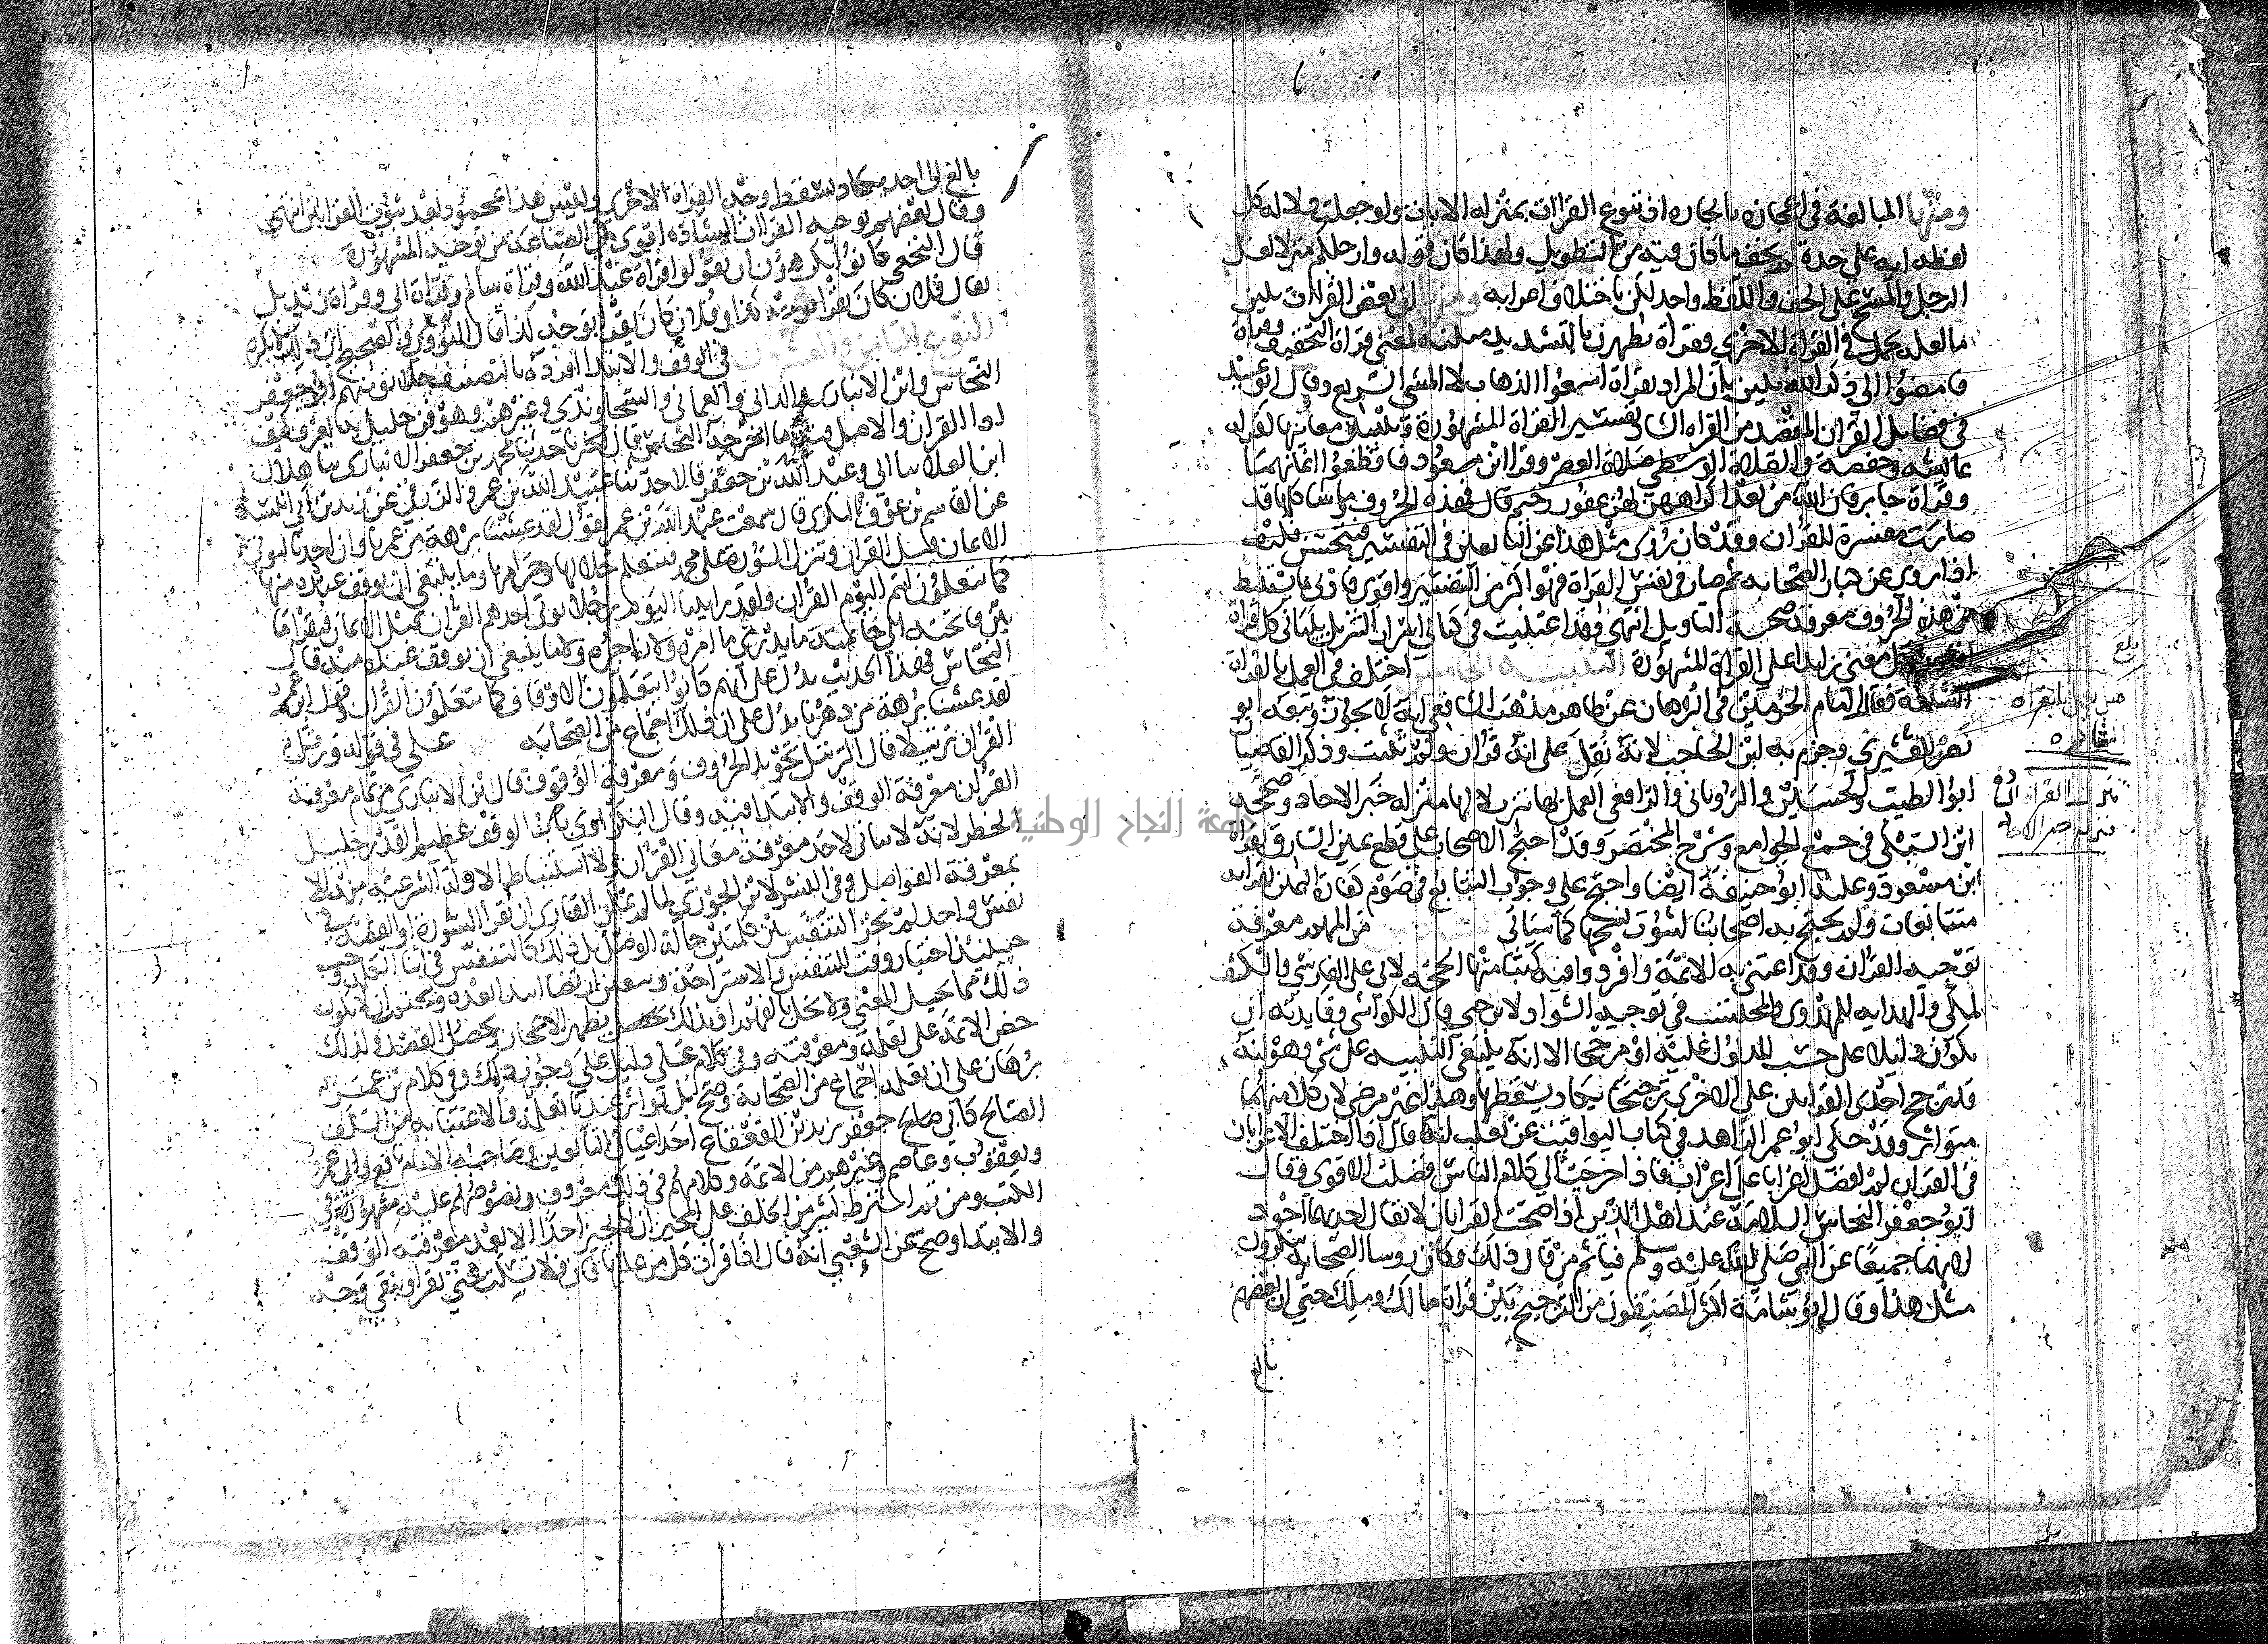 ومنها المبالغة في اعجازه بايجازه اذ تنوع القراات بمنزله الايات ولو جعلت دلاله كل
لفظه ايه علي حدة لم يخف ما كان فيه من التطويل ولهذا كان قوله وارجلكم منزلا لغسل
الرجل والمسح علي الخف واللفظ واحد لكن باختلاف اعرابه ومنها ان بعض القراات يبين
ما لعله يجهل في القراة الاخري فقراة يطهرن بالتشديد مبينه لمعني قراة التخفيف وقراة
فامضوا الي ذكر الله تبين بان المراد بقراة اسعوا الذهاب لا المشي السريع وقال ابو عبيد
في فضايل القران المقصد من القراه الشاذه تفسير القراة المشهورة وتبيين معانيها كقراه
عايشه وحفصة والصلاة الوسطي صلاة العصر وقراة ابن مسعود فاقطعوا ايمانهما
وقراة جابر فان الله من بعد اكراههن لهن غفور رحيم قال فهذه الحروف وما شاكلها قد
صارت مفسرة للقران وقد كان يروى مثل هذا عن التابعين في التفسير فيستحسن فكيف
اذا روي عن كبار الصحابه ثم صار في نفس القراة فهو اكثر من التفسير واقوي فادني ما يستنبط
من هذه الحروف معرفة صحة التاويل انتهي وقد اعتنيت في كتابي اسرار التنزيل ببيان كل قراة
افادت معني زايدا علي القراة المشهورة التنبيه الخامس اختلف في العمل بالقراة
الشاذة فنقل امام الحرمين في البرهان عن ظاهر مذهب الشافعي انه لا يجوز وتبعه ابو
نصر القشيري وجزم به ابن الحاجب لانه نقل علي انه قران ولم يثبت وذكر القاضيان
ابو الطيب والحسين والروياني والرافعي العمل بها تنزيلا لها منزله خبر الاحاد وصححه
ابن السبكي في جمع الجوامع وشرح المختصر وقد احتج الاصحاب علي قطع يمين السارق بقراة
ابن مسعود وعليه ابو حنيفة ايضا واحتج علي وجوب التتابع في صوم كفارة اليمين بقراته
متتابعات ولم يحتج به اصحابنا لثبوت نسخها كما سياتي من المهم معرفة
توجيه القران وقد اعتني به الائمة وافردوا فيه كتبا منها الحجة لابي علي الفارسي والكشف
لمكي والهدايه للمهدوي والمحتسب في توجيه الشواذ لابن جني قال الكواشي وفايدته ان
يكون دليلا علي حسب المدلول عليه او مرجحا الا انه ينبغي التنبيه علي شي وهو انه
قد ترجح احدى القراتين علي الاخري ترجيحا يكاد يسقطها وهذا غير مرضي لان كلا منهما
متواتر وقد حكي ابو عمر الزاهد في كتاب اليواقيت عن ثعلب انه قال اذا اختلف الاعرابان
في القران لم افضل اعرابا علي اعراب فاذا خرجت الي كلام الناس فضلت الاقوي وقال
ابو جعفر النحاس السلامة عند اهل الدين اذا صحت القراتان لا يقال احديهما اجود
لانهما جميعا عن النبي صلي الله عليه وسلم فياثم من قال ذلك وكان روسا الصحابه ينكرون
مثل هذا وقال ابو شامة اكثر المصنفون من الترجيح بين قراة مالك وملك حتي ان بعضهم
بالغ
بلغ
هل يعمل بالقراه
الشاذه
تنزيل القراة الشاذة
منزله خبر الاحاد
بالغ الي احد يكاد يسقط وجه القراة الاخري وليس هذا بمحمود بعد ثبوت القراتين انتهي
وقال بعضهم توجيه القراات الشاذه اقوي في الصناعة من توجيه المشهورة
قال النخعي كانوا يكرهون ان يقولوا قراة عبد الله وقراة سالم وقراة ابي وقراة زيد بل
يقال فلان كان يقرا بوجه كذا وفلان كان يقرا بوجه كذا قال النووي والصحيح ان ذلك لا يكره
النوع الثامن والعشرون في الوقف والابتدا افرده بالتصنيف خلايق منهم ابو جعفر
النحاس وابن الانباري والداني والعماني والسجاوندي وغيرهم وهو فن جليل به يعرف كيف
ادا القران والاصل فيه ما اخرجه النحاس قال حدثنا محمد بن جعفر الانباري ثنا هلال
ابن العلا ثنا ابي وعبد الله بن جعفر قالا حدثنا عبيد الله بن عمرو الزرقي عن زيد بن ابي انيسة
عن القاسم بن عوف البكري قال سمعت عبد الله بن عمر يقول لقد عشنا برهة من دهرنا وان احدنا ليوتي
الايمان قبل القران وتنزل السورة علي محمد فنتعلم حلالها وحرامها وما ينبغي ان يوقف عنده منها
كما تتعلمون انتم اليوم القران ولقد راينا اليوم رجالا يوتي احدهم القران قبل الايمان فيقرا ما
بين فاتحته الي خاتمته ما يدري ما امره ولا زاجره ولا ما ينبغي ان يوقف عنده منه قال
النحاس فهذا الحديث يدل علي انهم كانوا يتعلمون الاوقاف كما يتعلمون القران وقول ابن عمر
لقد عشنا برهة من دهرنا يدل علي ان ذلك اجماع من الصحابه علي في قوله ورتل
القران ترتيلا قال الترتيل تجويد الحروف ومعرفه الوقوف قال ابن الانباري من تمام معرفة
القران معرفة الوقف والابتدا فيه وقال النكزاوي باب الوقف عظيم القدر جليل
الخطر لانه لا يتاتي لاحد معرفة معاني القران ولا استنباط الادلة الشرعيه منه الا
بمعرفة الفواصل وفي النشر لابن الجوزي لما لم يمكن القاري ان يقرا السورة او القصة في
نفس واحد ولم يجز التنفس بين كلمتين حالة الوصل بل ذلك كالتنفس في اثنا الكلمه وجب
حينئذ اختيار وقت للتنفس والاستراحة وتعين ارتضا ابتدا بعده وتحتم ان لا يكون
ذلك مما يحيل المعني ولا يخل بالفهم اذ بذلك يظهر الاعجاز ويحصل القصد ولذلك
حض الائمة علي تعلمه ومعرفته وفي كلام علي دليل علي وجوب ذلك وفي كلام ابن عمر
برهان علي ان تعلمه اجماع من الصحابة وصح بل تواتر عندنا تعلمه والاعتنا به من السلف
الصالح كابي جعفر يزيد بن القعقاع احد اعيان التابعين وصاحبه الامام نافع وابي عمرو
ويعقوب وعاصم وغيرهم من الائمة وكلامهم في ذلك معروف ونصوصهم عليه مشهورة في
الكتب ومن ثم اشترط كثير من الخلف علي المجيز ان لا يجيز احدا الا بعد معرفته الوقف
والابتدا وصح عن الشعبي انه قال اذا قرات كل من عليها فان فلا تسكت حتي تقرا ويبقي وجه
جامعة النجاح الوطنية